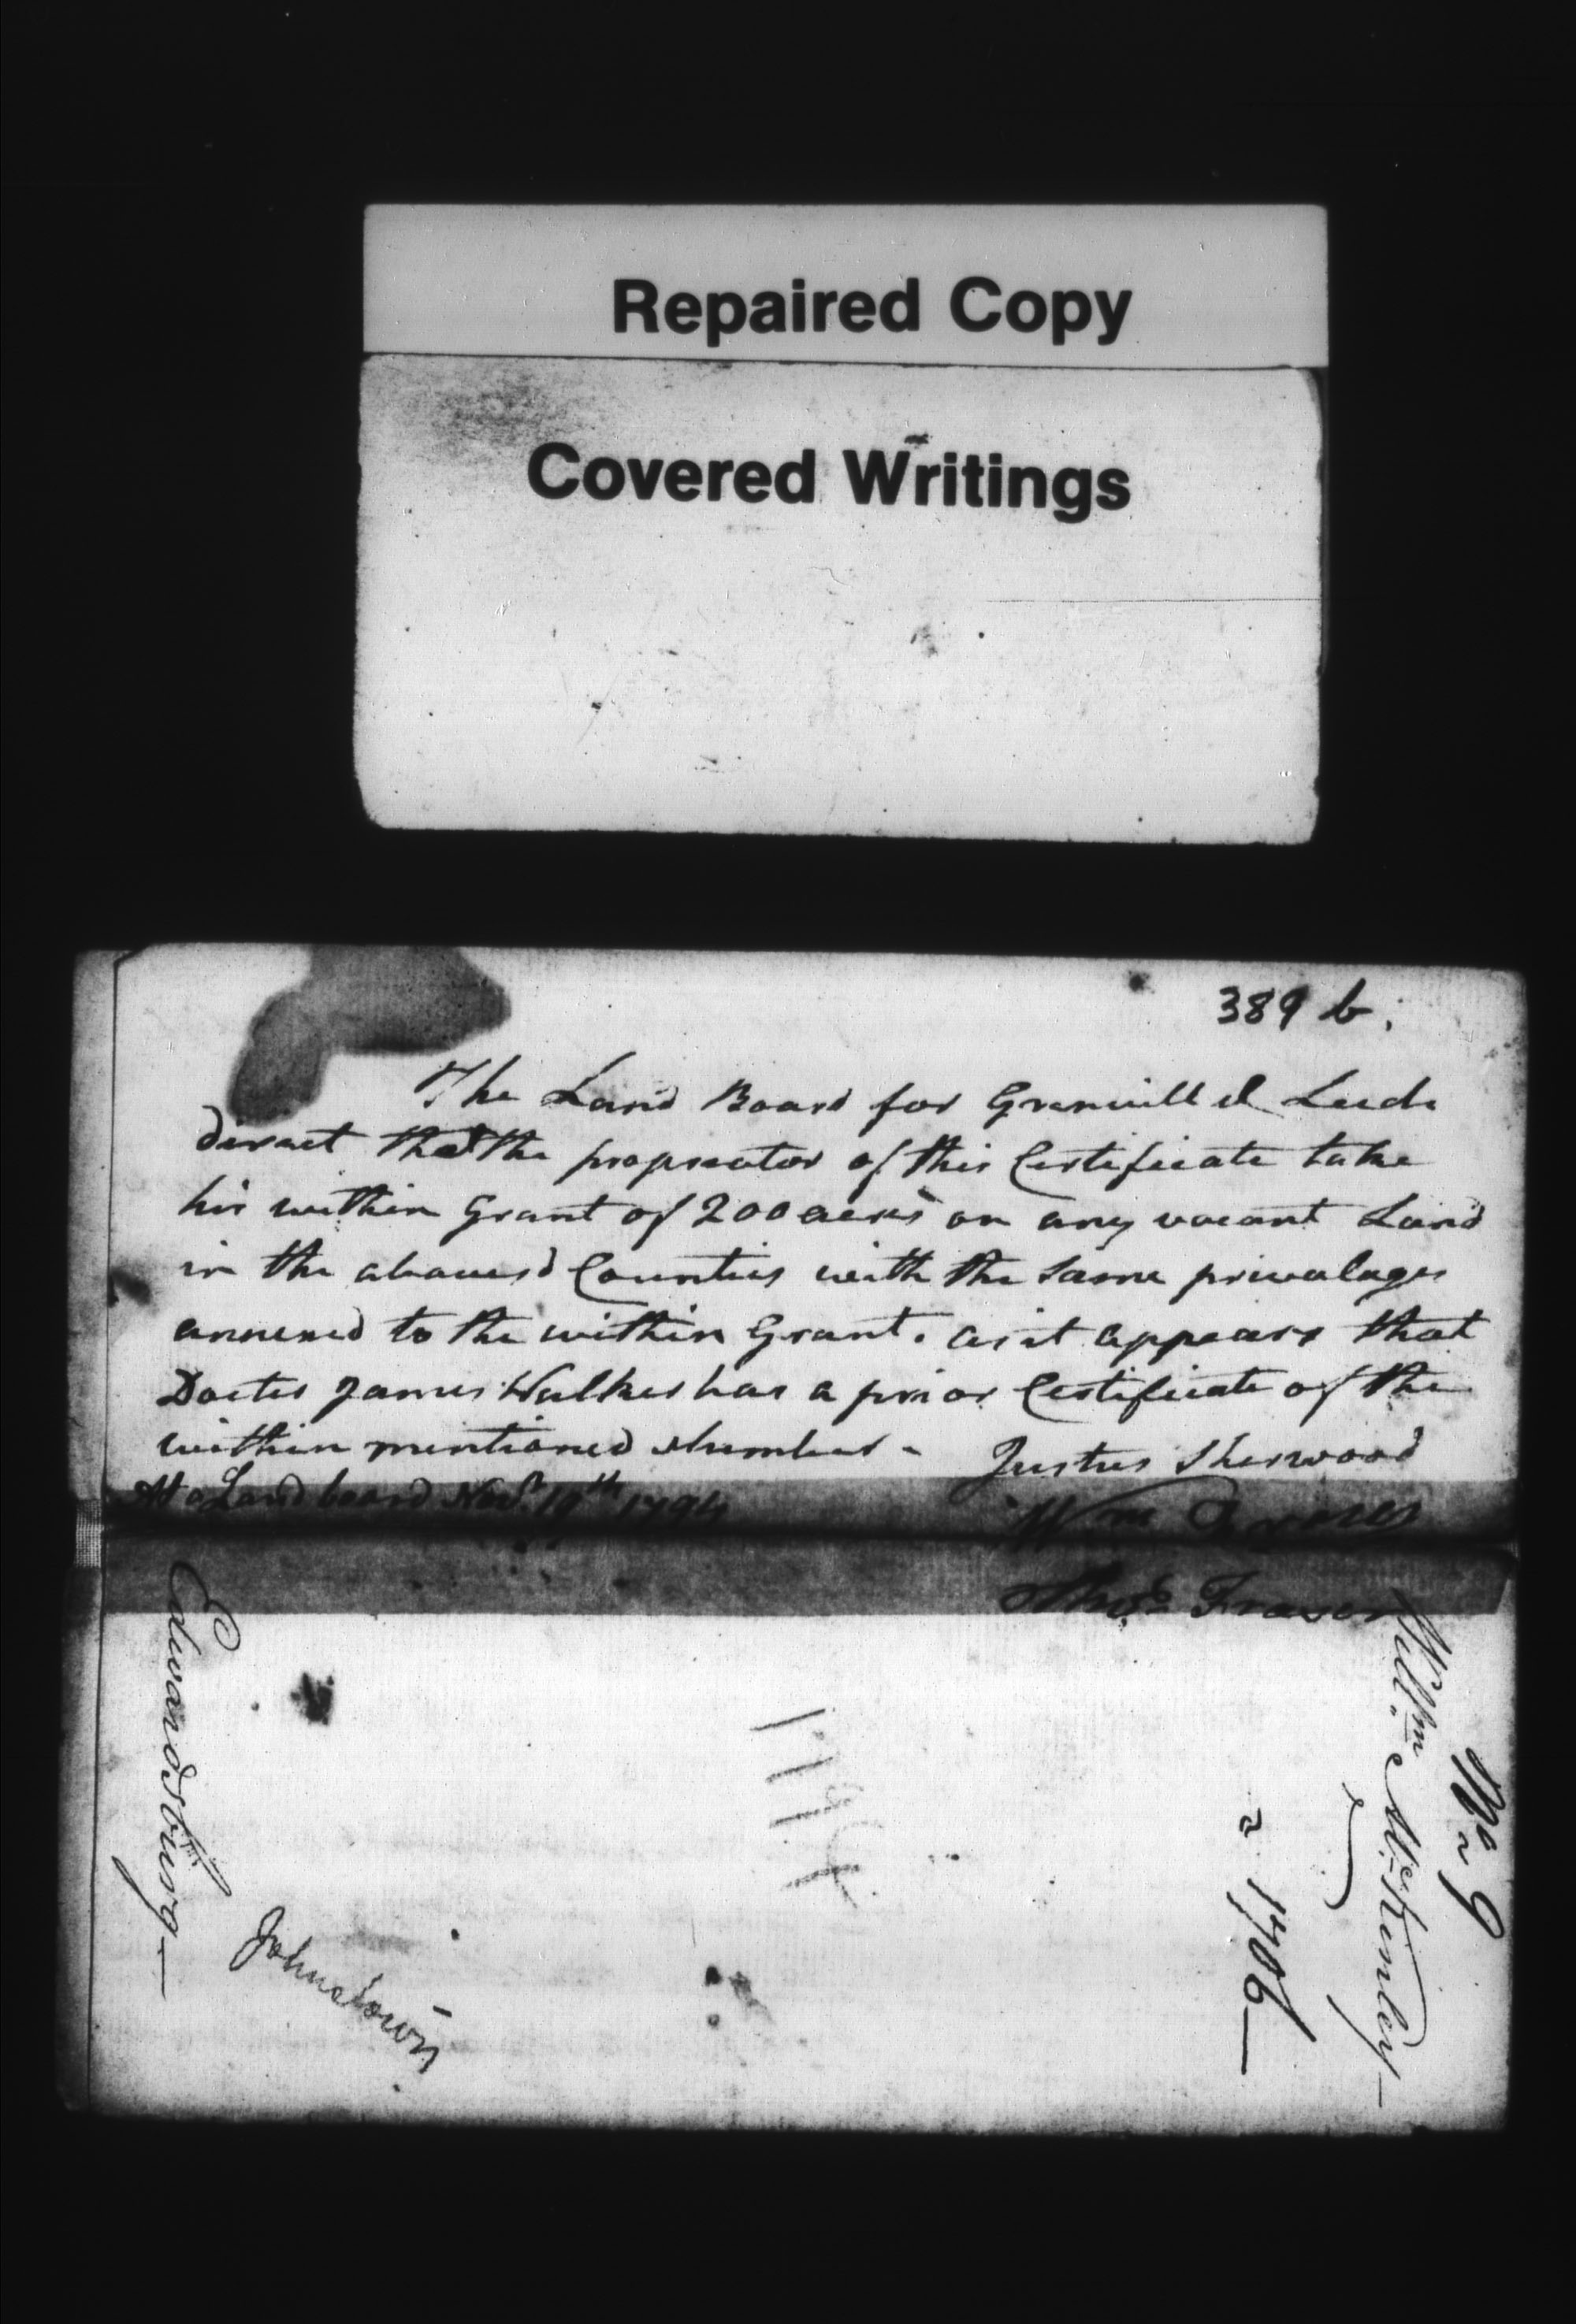 Repaired Copy
Covered Writings
389 b.
The Land Board for Granvill & Leeds
direct that the propreator of this Certificate take
his within Grant of 200 acres on any vacant Land
in the abovesd Counties with the same privalages
annexed to the within Grant. as it appears that
Doctor James Walker has a prior Certificate of the
within mentioned Number -
Justus Sherwood
At a Land board Novr. 19th 1794
Wm
Thos. Fraser
Edwardsburg —
Johnstown
1194
1706 —
Willm
No 9